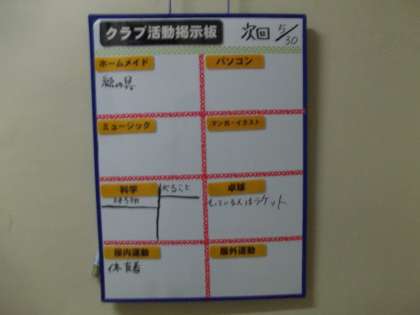 クラブ活動掲示板 次回 5/30
ホームメイド
パソコン
ミュージック
マンガ・イラスト
科学
やること
卓球
もっている人はラケット
室内運動
屋外運動
体育着